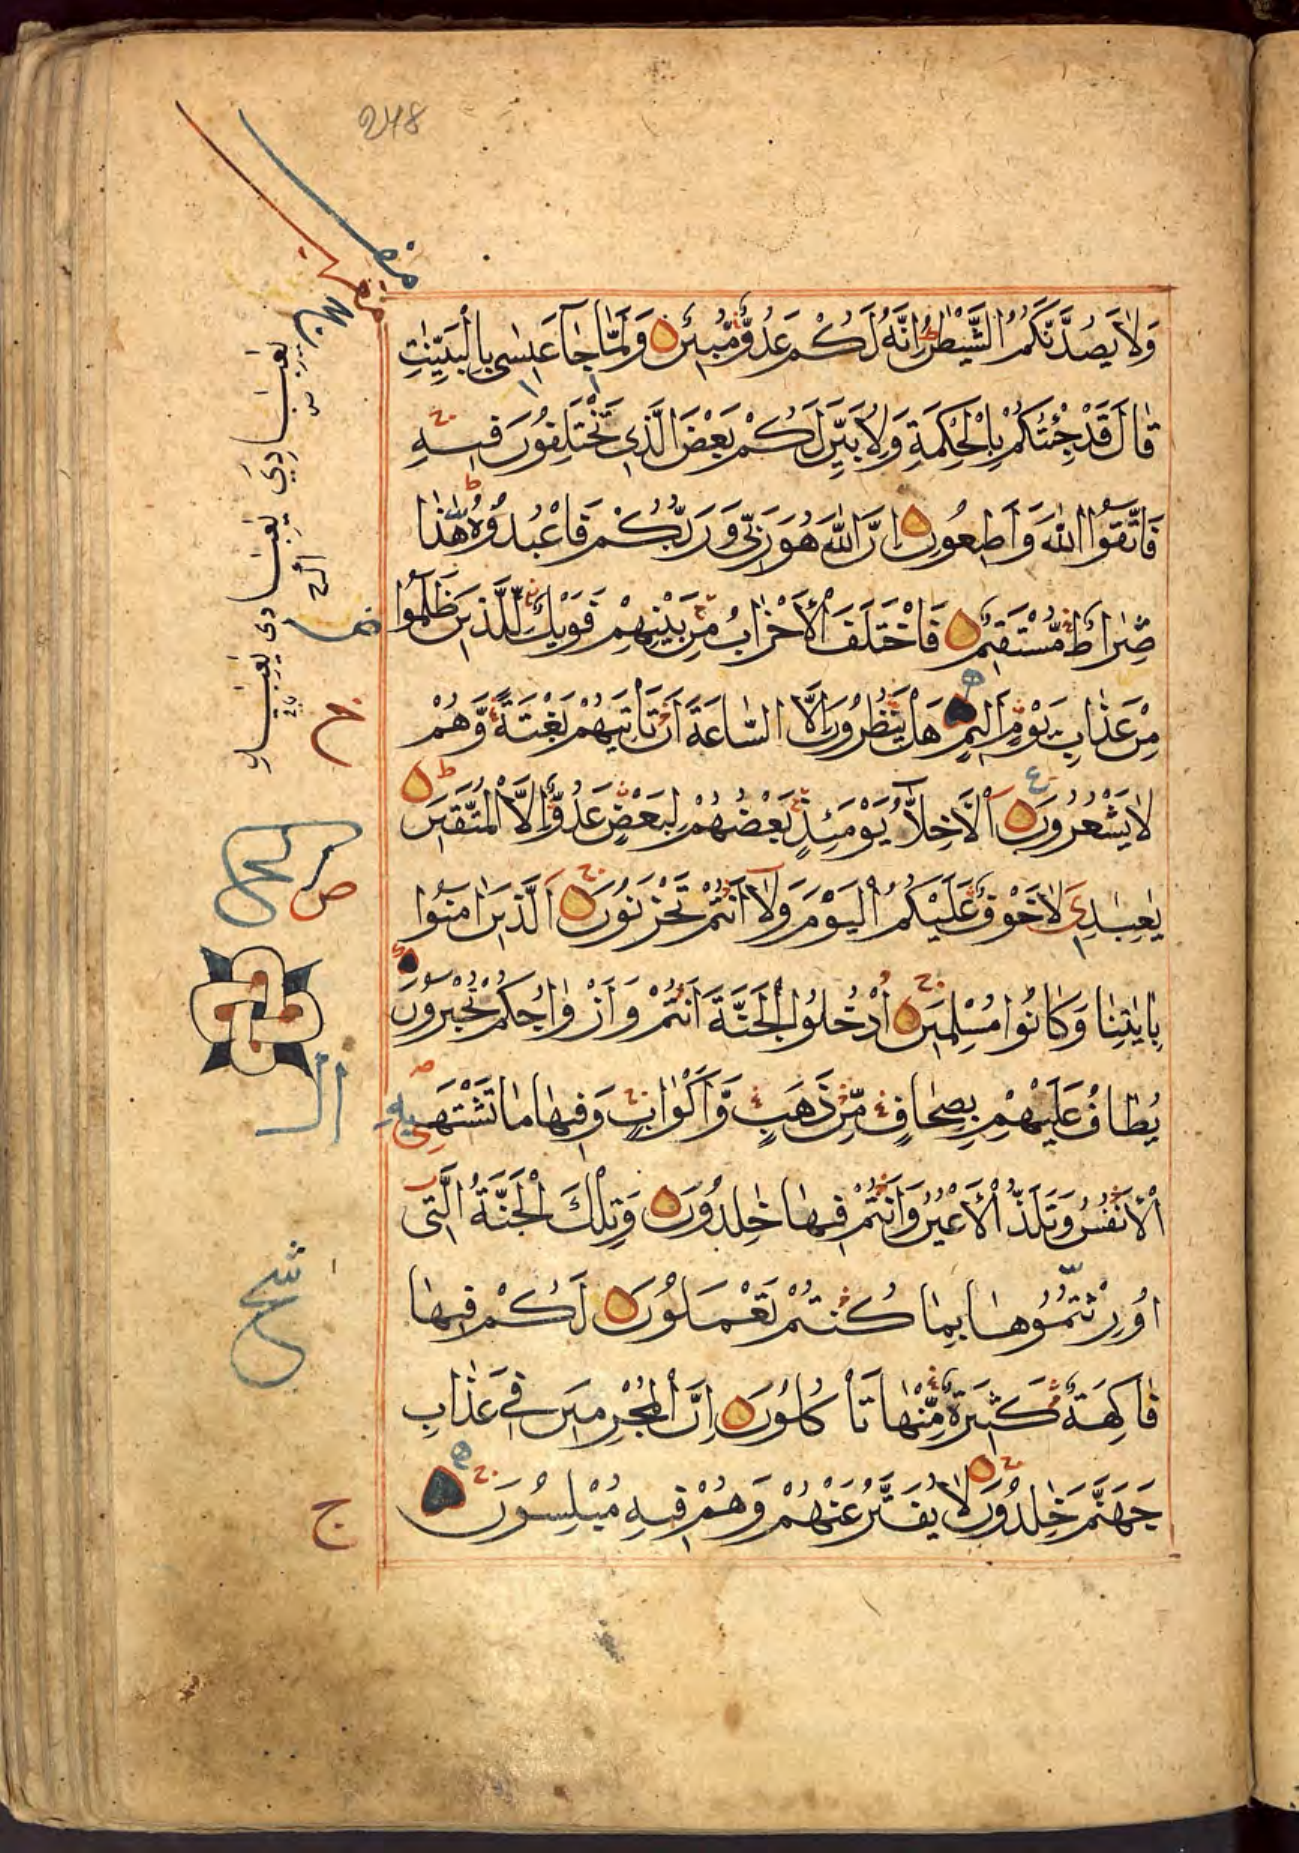 248
وَلَا يَصُدَّنَّكُمُ الشَّيْطٰنُ اِنَّهٗ لَكُمْ عَدُوٌّ مُّبِيْنٌ وَلَمَّا جَآءَ عِيْسٰى بِالْبَيِّنٰتِ
قَالَ قَدْ جِئْتُكُمْ بِالْحِكْمَةِ وَلِاُبَيِّنَ لَكُمْ بَعْضَ الَّذِى تَخْتَلِفُوْنَ فِيْهِ
فَاتَّقُوا اللّٰهَ وَاَطِيْعُوْنِ اِنَّ اللّٰهَ هُوَ رَبِّى وَرَبُّكُمْ فَاعْبُدُوْهُ هٰذَا
صِرَاطٌ مُّسْتَقِيْمٌ فَاخْتَلَفَ الْاَحْزَابُ مِنْ بَيْنِهِمْ فَوَيْلٌ لِّلَّذِيْنَ ظَلَمُوْا
مِنْ عَذَابِ يَوْمٍ اَلِيْمٍ هَلْ يَنْظُرُوْنَ اِلَّا السَّاعَةَ اَنْ تَاْتِيَهُمْ بَغْتَةً وَّهُمْ
لَا يَشْعُرُوْنَ اَلْاَخِلَّآءُ يَوْمَئِذٍ بَعْضُهُمْ لِبَعْضٍ عَدُوٌّ اِلَّا الْمُتَّقِيْنَ
يٰعِبَادِىَ لَا خَوْفٌ عَلَيْكُمُ الْيَوْمَ وَلَآ اَنْتُمْ تَحْزَنُوْنَ اَلَّذِيْنَ اٰمَنُوْا
بِاٰيٰتِنَا وَكَانُوْا مُسْلِمِيْنَ اُدْخُلُوا الْجَنَّةَ اَنْتُمْ وَاَزْوَاجُكُمْ تُحْبَرُوْنَ
يُطَافُ عَلَيْهِمْ بِصِحَافٍ مِّنْ ذَهَبٍ وَّاَكْوَابٍ وَفِيْهَا مَا تَشْتَهِيْهِ
الْاَنْفُسُ وَتَلَذُّ الْاَعْيُنُ وَاَنْتُمْ فِيْهَا خٰلِدُوْنَ وَتِلْكَ الْجَنَّةُ الَّتِى
اُوْرِثْتُمُوْهَا بِمَا كُنْتُمْ تَعْمَلُوْنَ لَكُمْ فِيْهَا
فَاكِهَةٌ كَثِيْرَةٌ مِّنْهَا تَاْكُلُوْنَ اِنَّ الْمُجْرِمِيْنَ فِىْ عَذَابِ
جَهَنَّمَ خٰلِدُوْنَ لَا يُفَتَّرُ عَنْهُمْ وَهُمْ فِيْهِ مُبْلِسُوْنَ